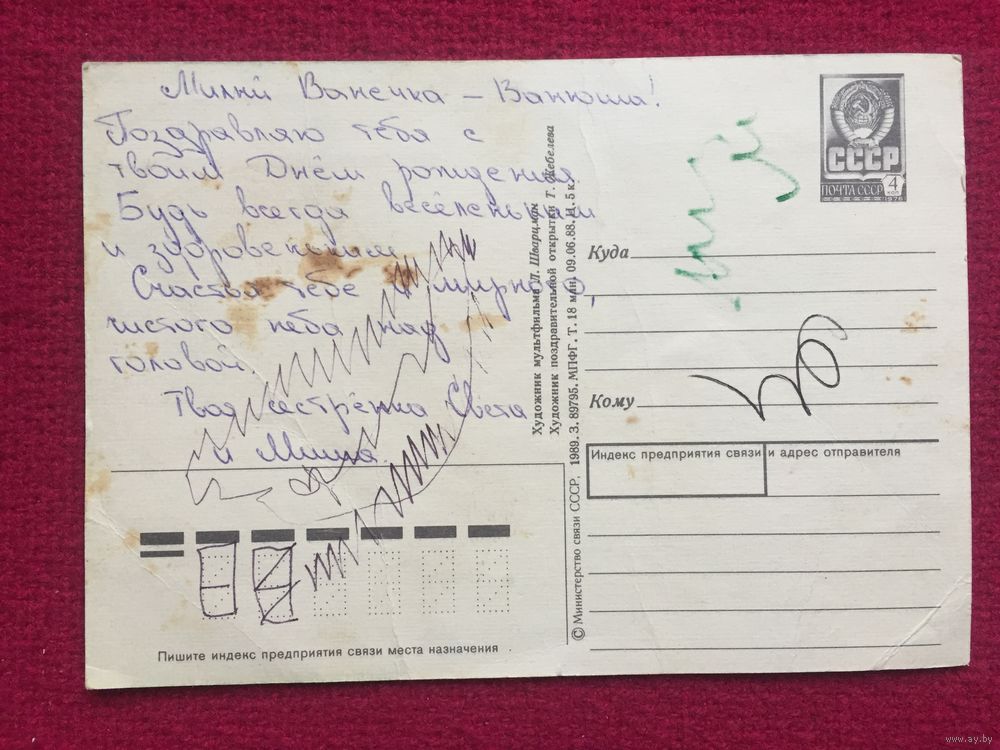 Милый Ванечка – Ванюша!
Поздравляю тебя с
твоим Днём рождения.
Будь всегда весёленьким
и здоровеньким
Счастья тебе и мирного,
чистого неба над
головой.
Твоя сестрёнка Света
и Миша.
Пишите индекс предприятия связи места назначения
Художник мультфильма Л. Шварцман
Художник поздравительной открытки Т. Жебелева
© Министерство связи СССР, 1989. З. 89795. МПФГ. Т. 18 млн. 09.06.88. Ц. 5 к.
СССР
ПОЧТА СССР 4 КОП
1978
Куда
Кому
Индекс предприятия связи и адрес отправителя
www.ay.by